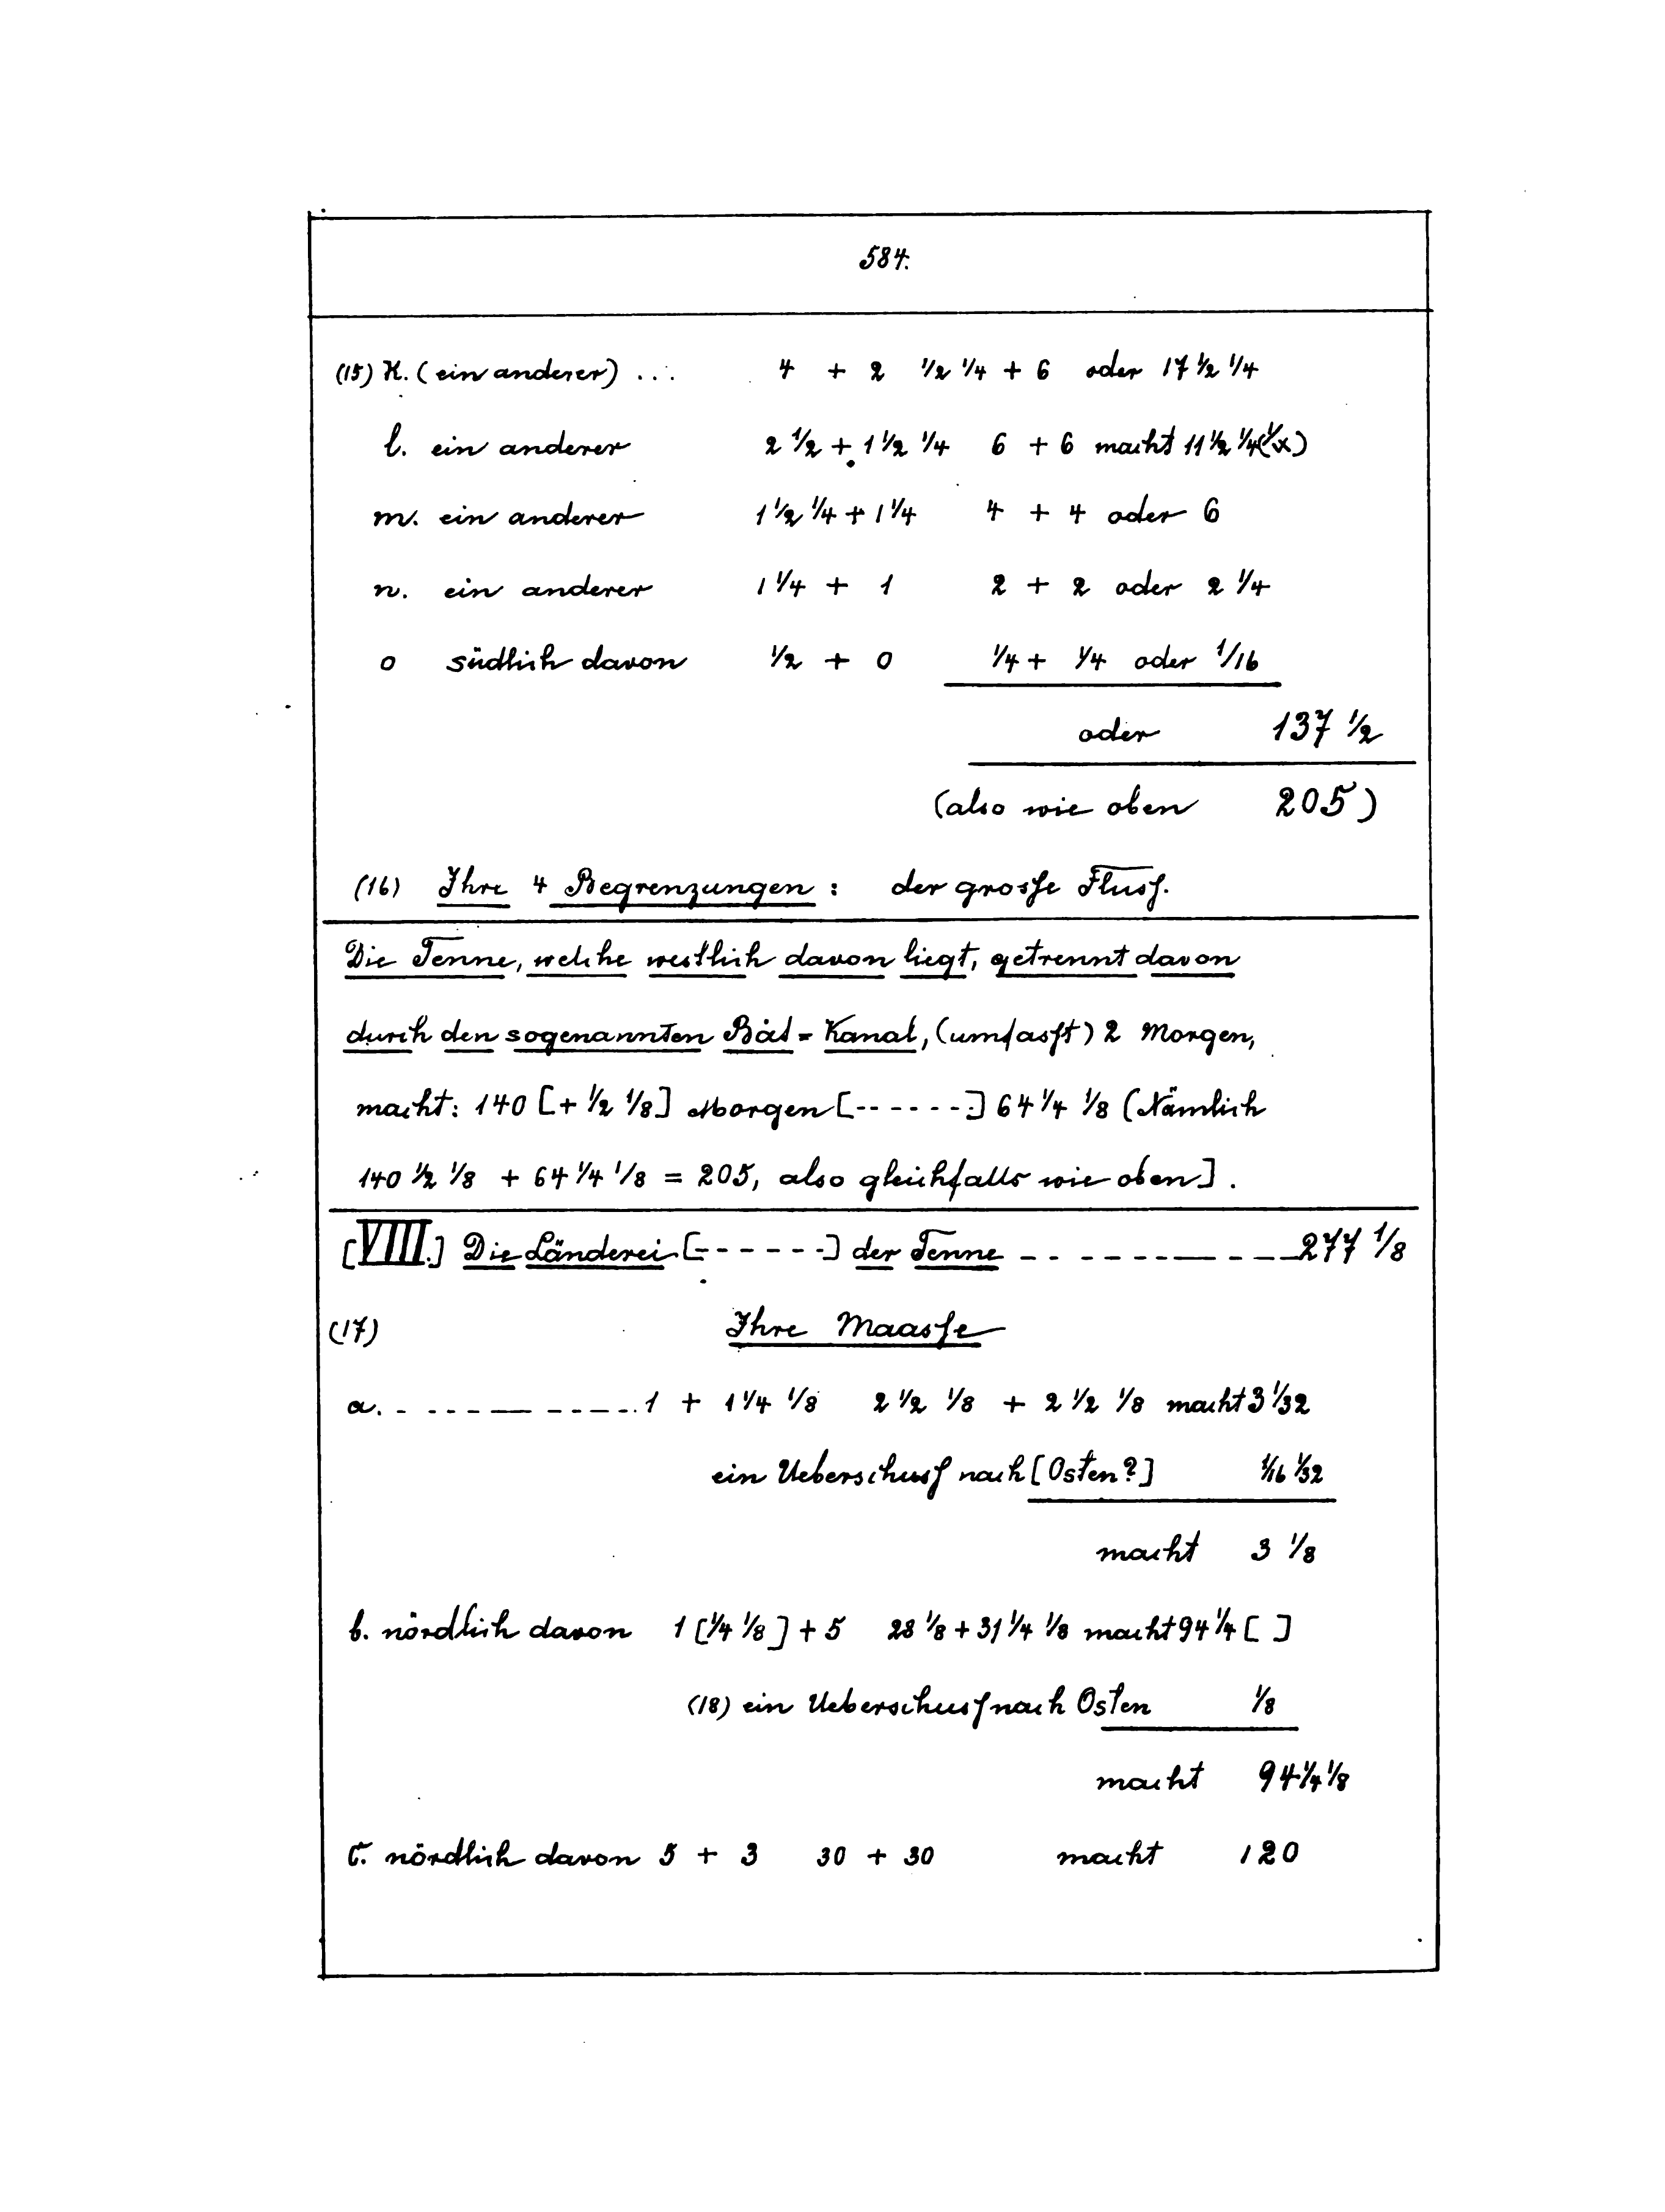 584.
(15) K. (ein anderer) ... 4 + 2 ½ ¼ + 6 oder 17 ½ ¼
l. ein anderer 2 ½ + 1 ½ ¼ 6 + 6 macht 11 ½ ¼ (⅟x)
m. ein anderer 1 ½ ¼ + 1 ¼ 4 + 4 oder 6
n. ein anderer 1 ¼ + 1 2 + 2 oder 2 ¼
o südlich davon ½ + 0 ¼ + ¼ oder 1/16
oder 137 ½
(also wie oben 205)
(16) Ihre 4 Begrenzungen : der grosse Fluss.
Die Tenne, welche westlich davon liegt, getrennt davon
durch den sogenannten Bàt = Kanal, (umfasst) 2 Morgen,
macht: 140 [+ ½ ⅛] Morgen [------] 64 ¼ ⅛ (Nämlich
140 ½ ⅛ + 64 ¼ ⅛ = 205, also gleichfalls wie oben].
[VIII.] Die Länderei [------] der Tenne ---------- 277 ⅛
(17) Ihre Maasse
a. ---------- 1 + 1 ¼ ⅛ 2 ½ ⅛ + 2 ½ ⅛ macht 3 1/32
ein Ueberschuss nach [Osten?] 1/16 1/32
macht 3 ⅛
b. nördlich davon 1 [¼ ⅛] + 5 28 ⅛ + 31 ¼ ⅛ macht 94 ¼ [ ]
(18) ein Ueberschuss nach Osten ⅛
macht 94 ¼ ⅛
c. nördlich davon 5 + 3 30 + 30 macht 120